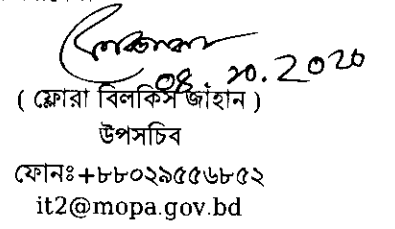 08.10.2020
( ফ্লোরা বিলকিস জাহান )
উপসচিব
ফোনঃ+৮৮০২৯৫৫৬৮৫২
it2@mopa.gov.bd